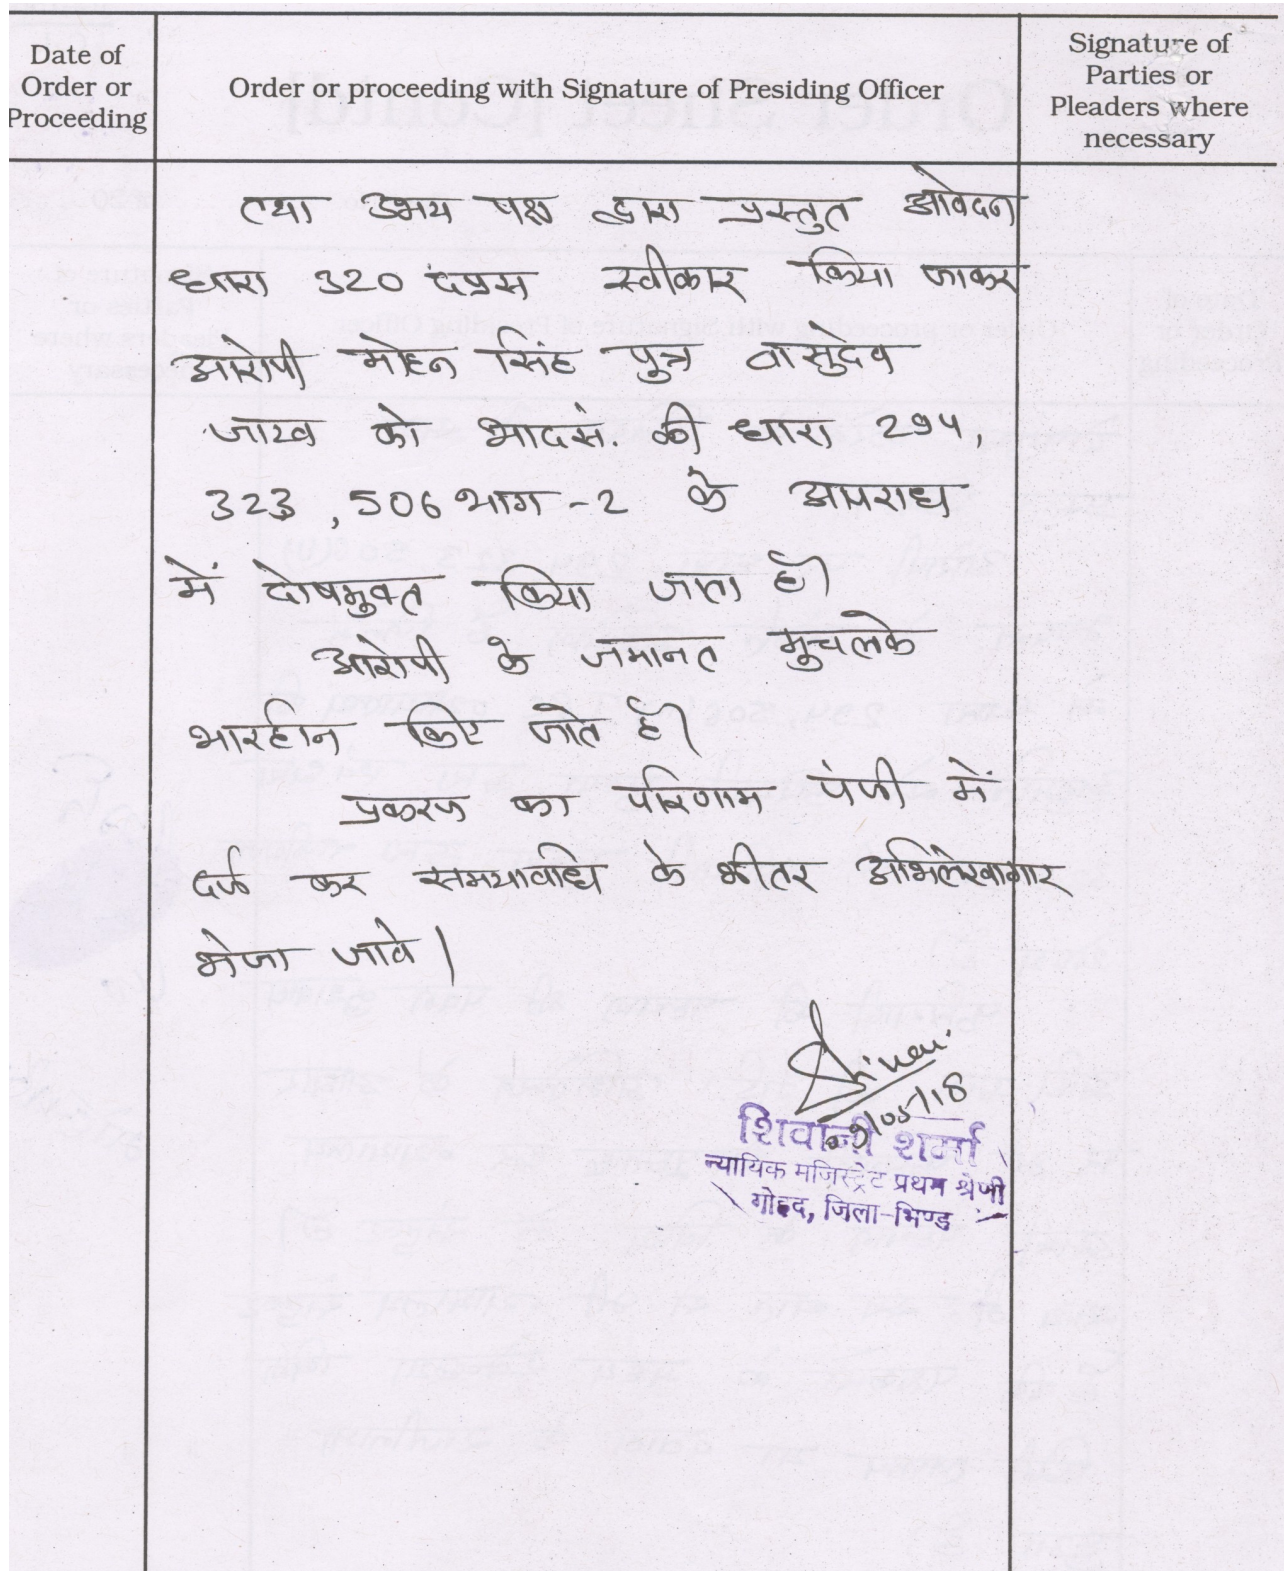 Date of
Order or
Proceeding
Order or proceeding with Signature of Presiding Officer
Signature of
Parties or
Pleaders where
necessary
तथा उभय पक्ष द्वारा प्रस्तुत आवेदन
धारा 320 दप्रस स्वीकार किया जाकर
आरोपी मोहन सिंह पुत्र वासुदेव
जाटव को भादसं. की धारा 294,
323, 506 भाग -2 के अपराध
में दोषमुक्त किया जाता है।
आरोपी के जमानत मुचलके
भारहीन किए जाते है।
प्रकरण का परिणाम पंजी में
दर्ज कर समयावधि के भीतर अभिलेखागार
भेजा जावे।
शिवानी शर्मा
न्यायिक मजिस्ट्रेट प्रथम श्रेणी
गोहद, जिला-भिण्ड